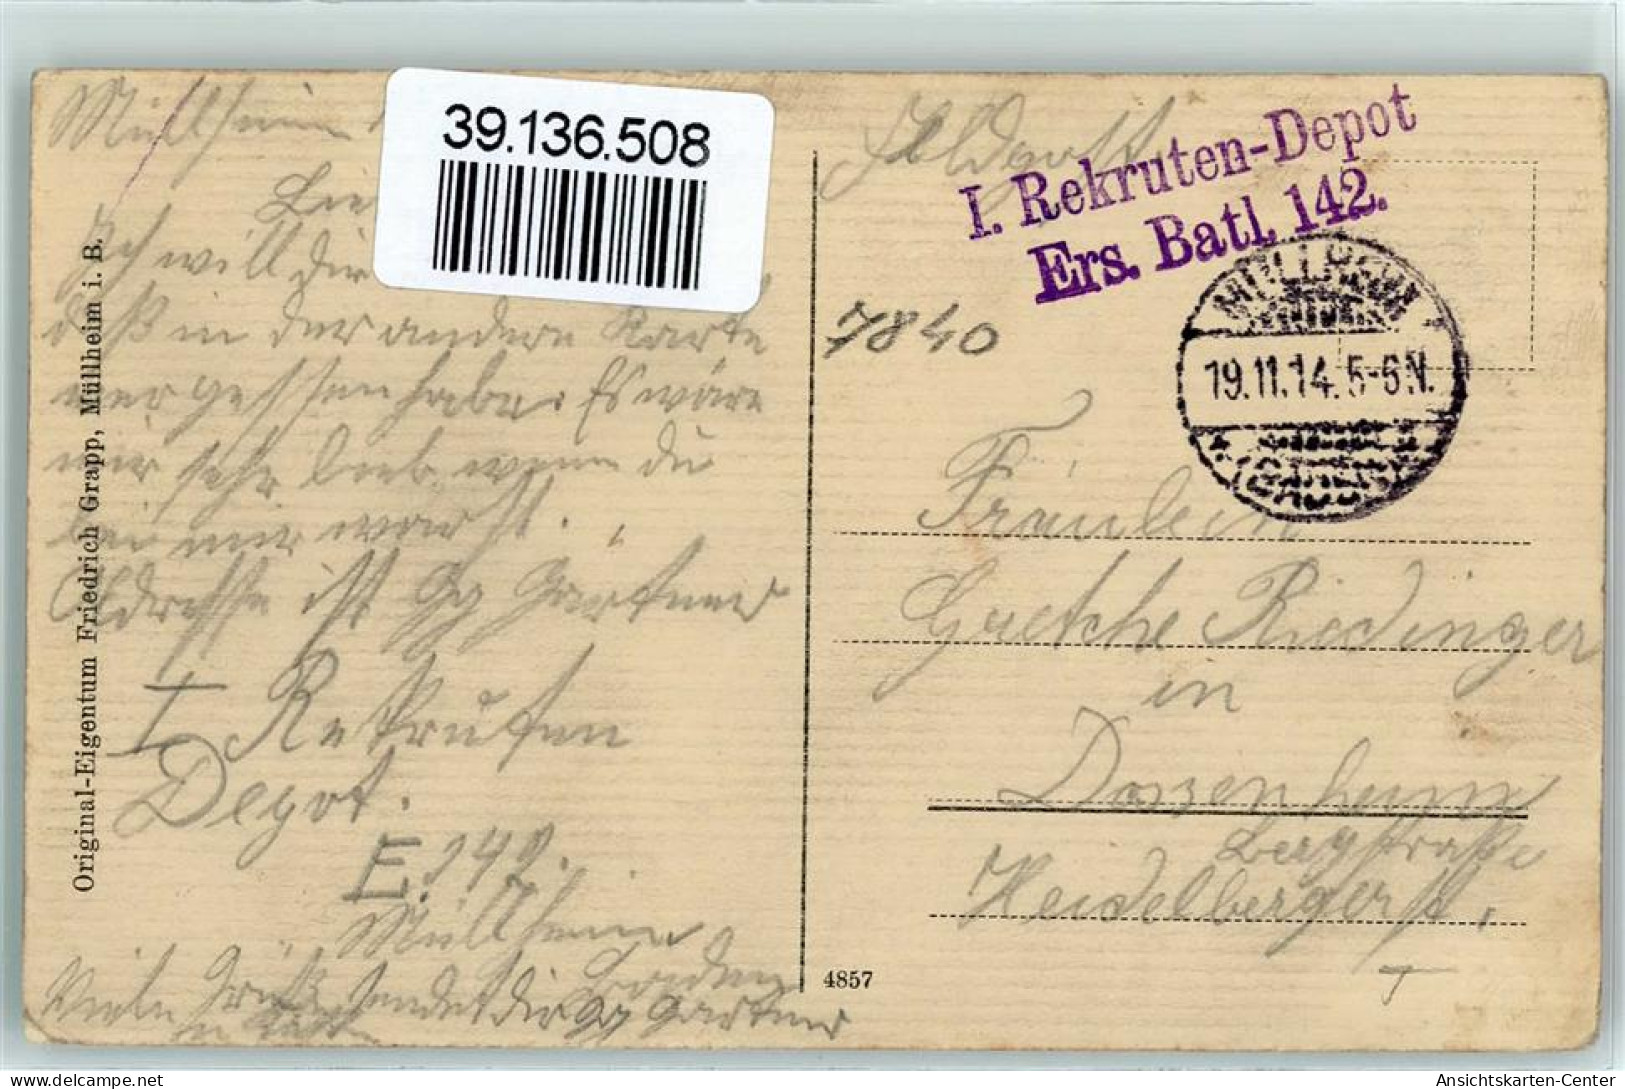 39.136.508
Müllheim
Ich will dir
daß in der andere Karte
vergessen habe. Es wäre
mir sehr lieb wenn du
bei mir warst.
Adresse ist Gg Gartner
I Rekruten
Depot.
E. 142.
Müllheim
Baden
Viele Grüße sendet dir Gg Gartner
Original-Eigentum Friedrich Grapp, Müllheim i. B.
4857
Feldpost
I. Rekruten-Depot
Ers. Batl. 142.
7840
MÜLLHEIM
19.11.14.5-6N.
(BADEN)
Fräulein
Gretche Riedinger
in
Dossenheim
Bergstraße
Heidelbergerst.
Ansichtskarten-Center